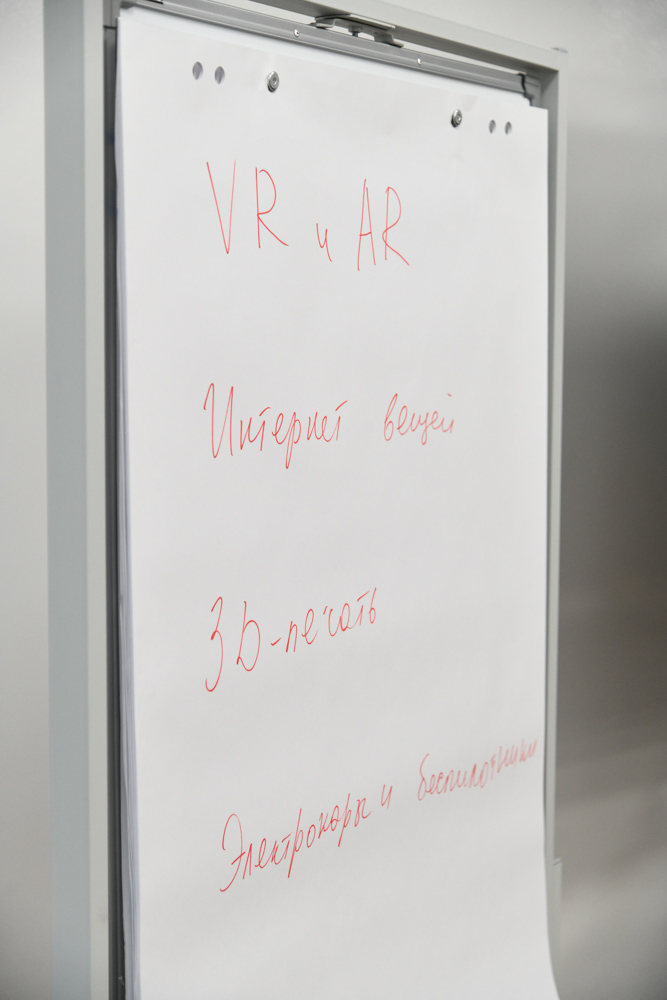 VR и AR
Интернет вещей
3D-печать
Электрокары и беспилотники